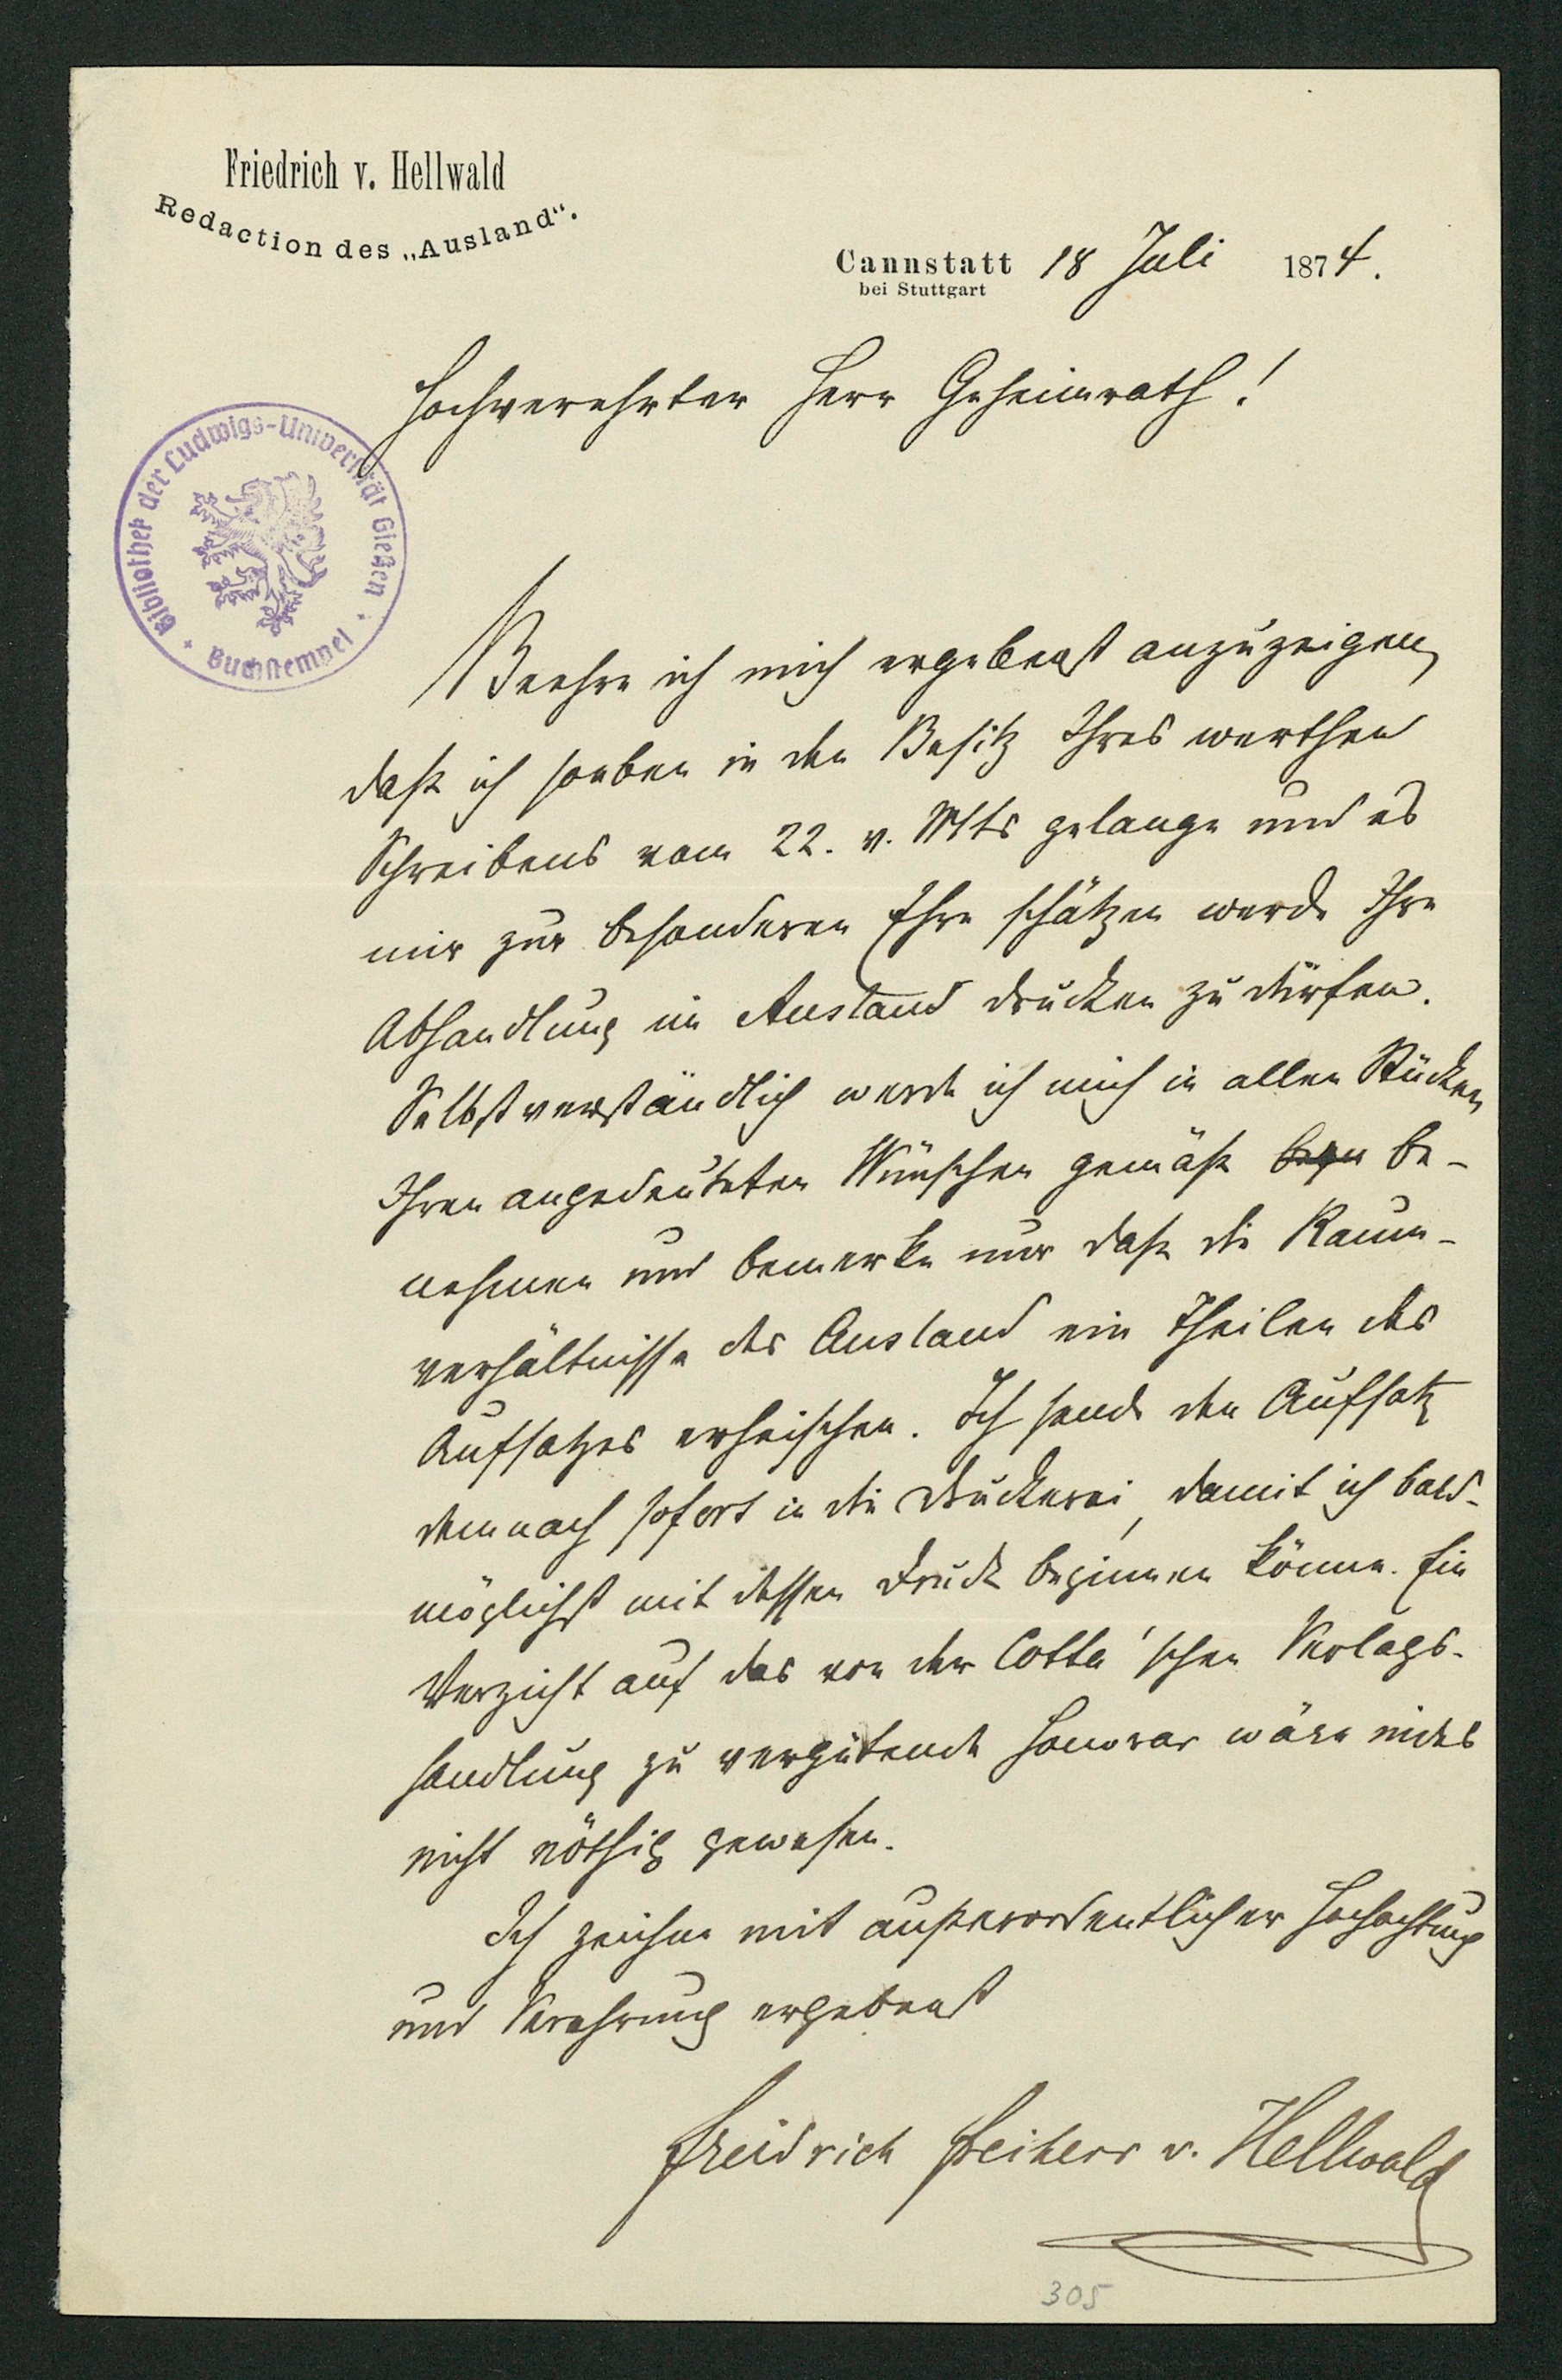 Friedrich v. Hellwald
Redaction des „Ausland“.
Cannstatt 18 Juli 1874.
bei Stuttgart
Hochverehrter Herr Geheimrath!
Bibliothek der Ludwigs-Universität Gießen
Buchstempel
Beehre ich mich ergebenst anzuzeigen,
daß ich soeben in den Besitz Ihres werthen
Schreibens vom 22. v. Mts gelange und es
mir zur besonderen Ehre schätzen werde Ihre
Abhandlung im Ausland drucken zu dürfen.
Selbstverständlich werde ich mich in allen Stücken
Ihren angedeuteten Wünschen gemäß be-
nehmen und bemerke nur daß die Raum-
verhältnisse des Ausland ein Theilen des
Aufsatzes erheischen. Ich sende den Aufsatz
demnach sofort in die Druckerei, damit ich bald-
möglichst mit dessen Druck beginnen könne. Ein
Verzicht auf das von der Cotta'schen Verlags-
handlung zu vergütende Honorar wäre indeß
nicht nöthig gewesen.
Ich zeichne mit außerordentlicher Hochachtung
und Verehrung ergebenst
Freidrich Freiherr v. Hellwald
305